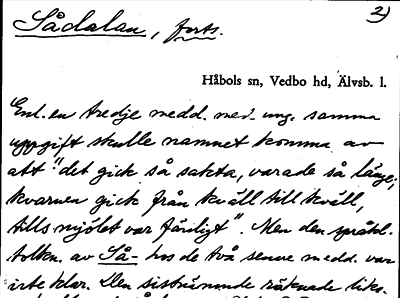 Sådalan, forts.
2)
Håbols sn, Vedbo hd, Älvsb. l.
Enl. en tredje medd. med ung. samma
uppgift skulle namnet komma av
att "det gick så sakta, varade så länge,
kvarnen gick från kväll till kväll,
tills mjölet var färdigt". Men den språkl.
tolkn. av Så- hos de två senare medd. var
inte klar. Den sistnämnde räknade liks.